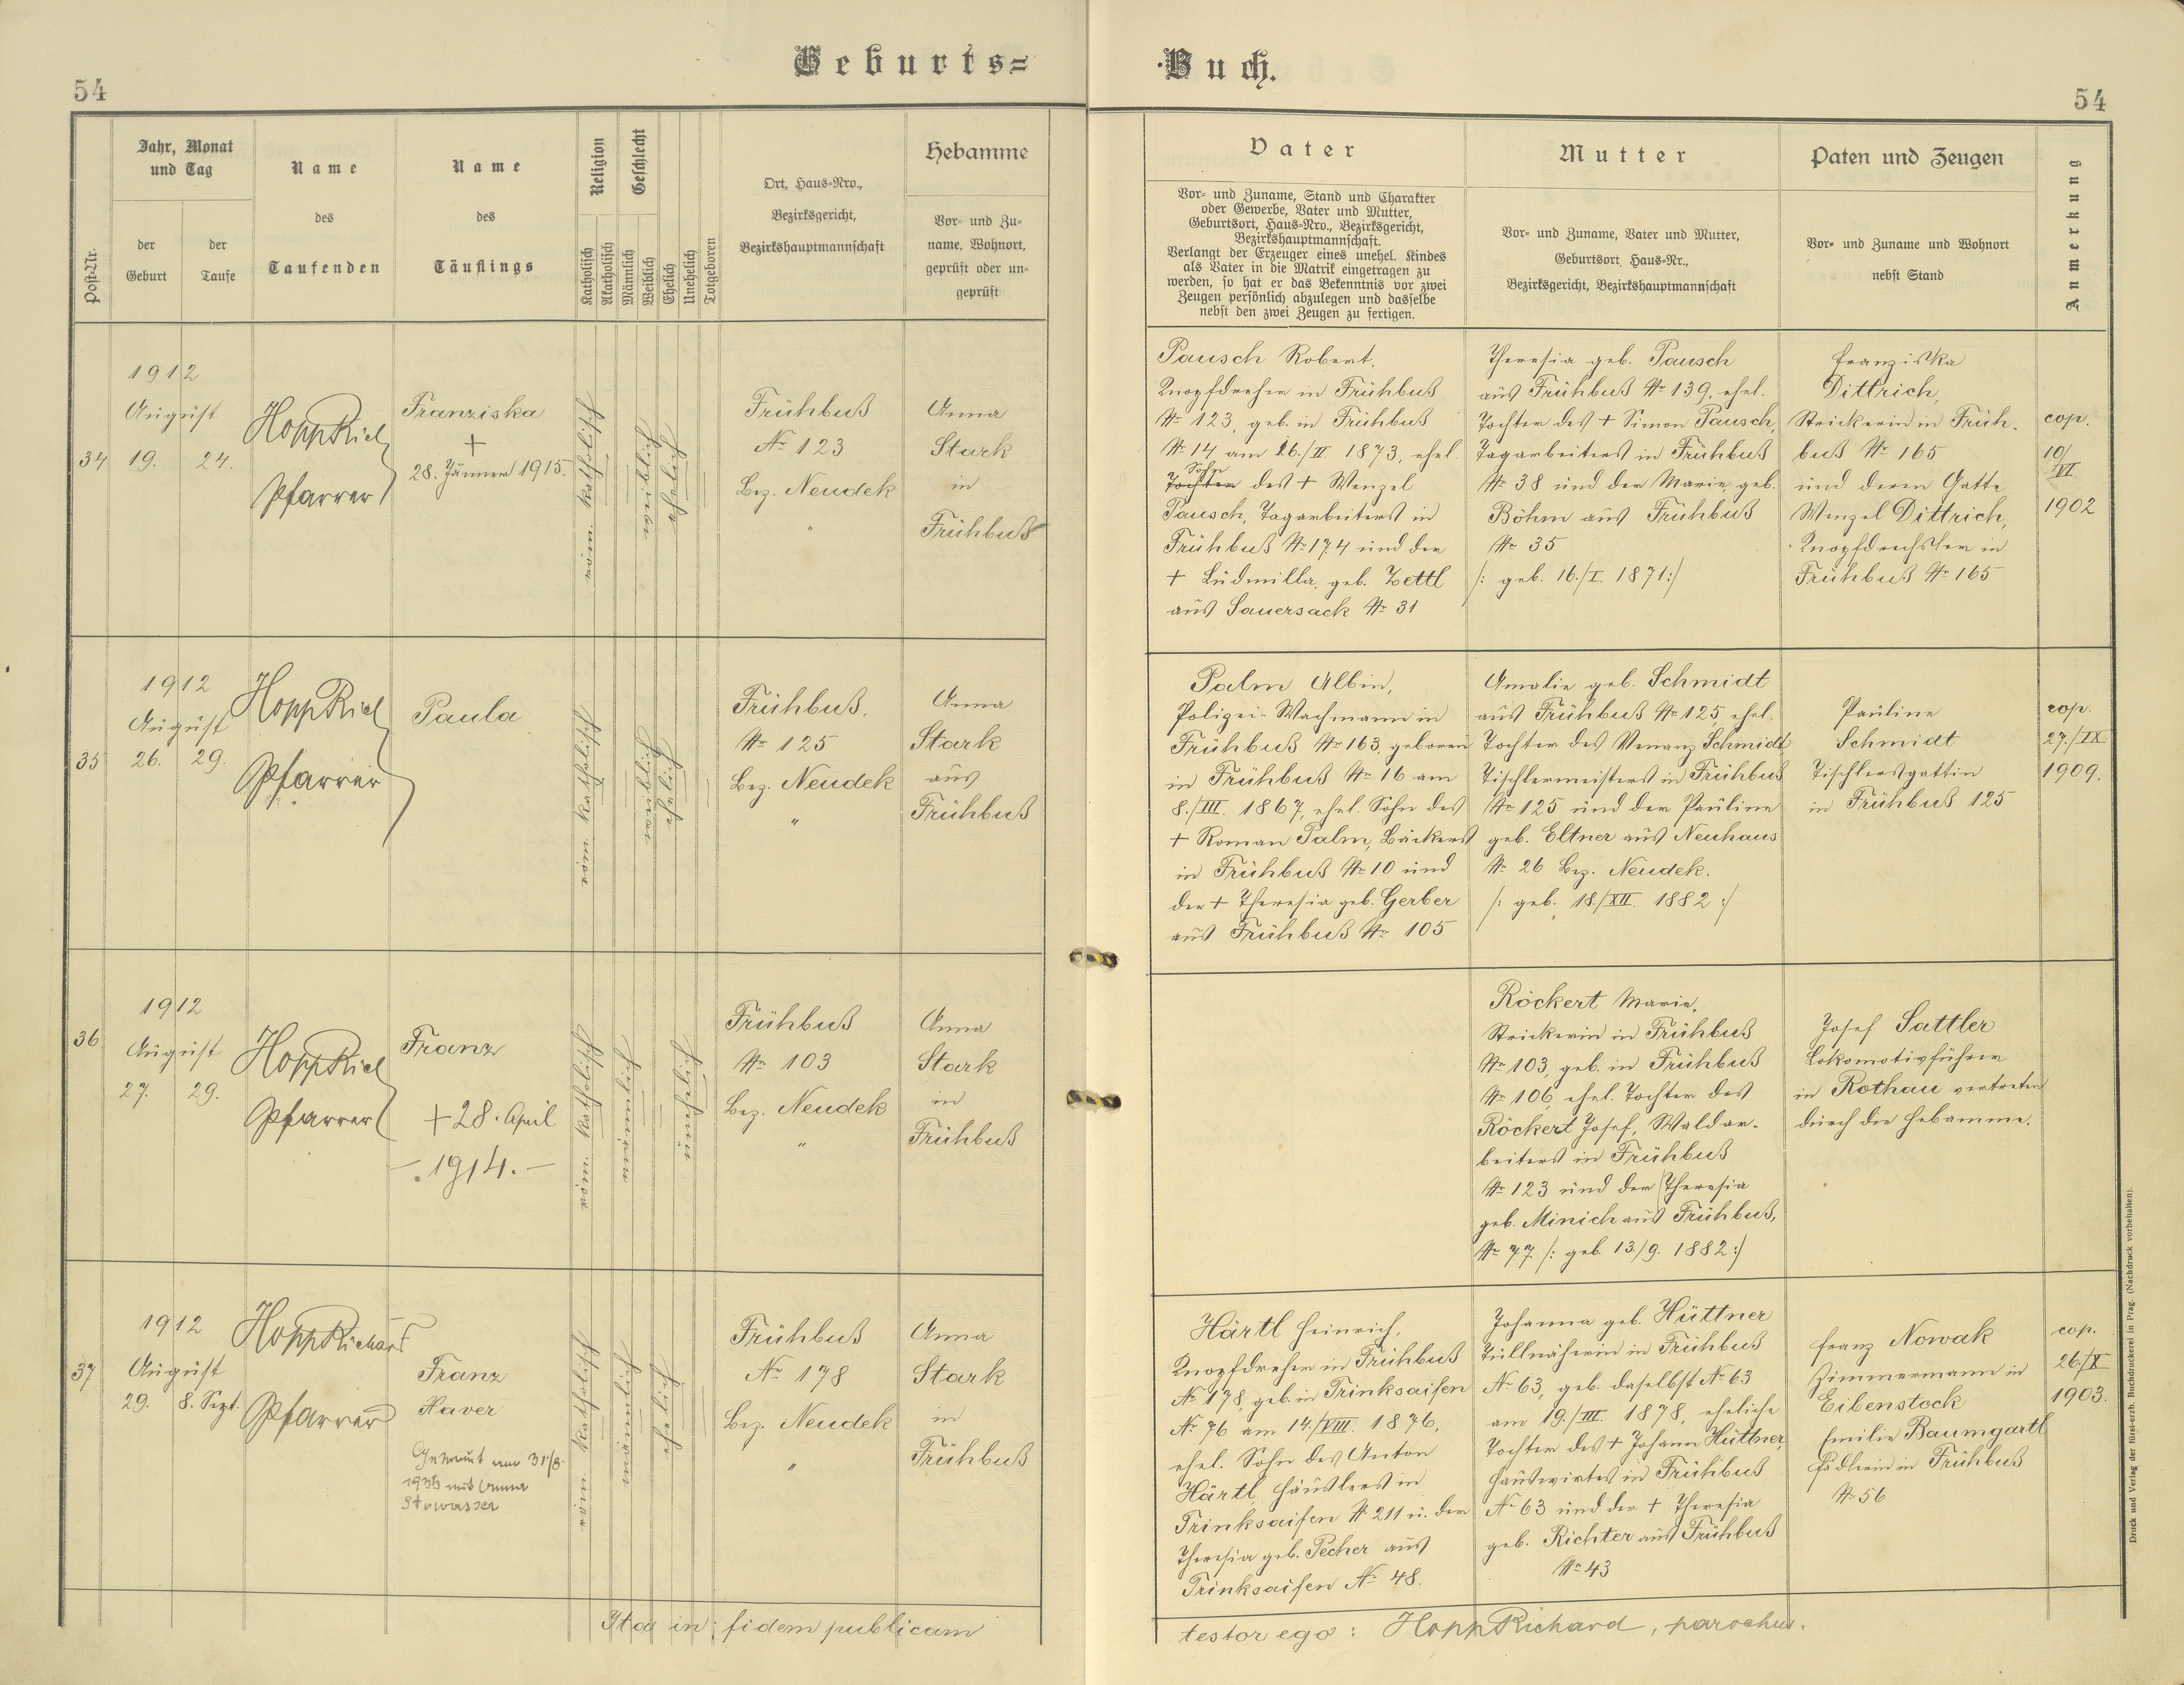 Geburts=
Buch.
54
54
Post-Nr.
Jahr, Monat
und Tag
der
Geburt
der
Taufe
Name
des
Taufenden
Name
des
Täuflings
Religion
Katholisch
Akatholisch
Geschlecht
Männlich
Weiblich
Ehelich
Unehelich
Totgeboren
Ort, Haus=Nro.,
Bezirksgericht,
Bezirkshauptmannschaft
Hebamme
Vor= und Zu=
name, Wohnort,
geprüft oder un=
geprüft
Vater
Vor= und Zuname, Stand und Charakter
oder Gewerbe, Vater und Mutter,
Geburtsort, Haus=Nro., Bezirksgericht,
Bezirkshauptmannschaft.
Verlangt der Erzeuger eines unehel. Kindes
als Vater in die Matrik eingetragen zu
werden, so hat er das Bekenntnis vor zwei
Zeugen persönlich abzulegen und dasselbe
nebst den zwei Zeugen zu fertigen.
Mutter
Vor= und Zuname, Vater und Mutter,
Geburtsort, Haus=Nr.,
Bezirksgericht, Bezirkshauptmannschaft
Paten und Zeugen
Vor= und Zuname und Wohnort
nebst Stand
Anmerkung
34
1912
August
19. 24.
Hopp Rich
Pfarrer
Franziska
+
28. Jänner 1915.
röm. katholisch
weiblich
ehelich
Frühbuß
№ 123
Bez. Neudek
"
Anna
Stark
in
Frühbuß
Pausch Robert,
Knopfdreher in Frühbuß
№ 123, geb. in Frühbuß
№ 14 am 26./II 1873, ehel.
Sohn
Tochter des + Wenzel
Pausch, Tagarbeiters in
Frühbuß № 174 und der
+ Ludmilla, geb. Zettl
aus Sauersack № 31
Theresia geb. Pausch
aus Frühbuß № 139, ehel.
Tochter des + Simon Pausch,
Tagarbeiters in Frühbuß
№ 38 und der Marie, geb.
Böhm aus Frühbuß
№ 35
/: geb. 16./I. 1871:/
Franziska
Dittrich,
Strickerin in Früh-
buß № 165
und deren Gatte
Wenzel Dittrich,
Knopfdrechsler in
Frühbuß № 165
cop.
10/
VI.
1902
35
1912
August
26. 29.
Hopp Rich
Pfarrer
Paula
röm. katholisch
weiblich
ehelich
Frühbuß.
№ 125
Bez. Neudek
"
Anna
Stark
aus
Frühbuß
Palm Albin,
Polizei-Wachmann in
Frühbuß № 163, geboren
in Frühbuß № 16 am
8./III. 1867, ehel. Sohn des
+ Roman Palm, Bäckers
in Frühbuß № 10 und
der + Theresia geb. Gerber
aus Frühbuß № 105
Amalie geb. Schmidt
aus Frühbuß № 125, ehel.
Tochter des Venanz Schmidt
Tischlermeisters in Frühbuß
№ 125 und der Pauline
geb. Eltner aus Neuhaus
№ 26 Bez. Neudek.
/: geb. 18./XII. 1882 :/
Pauline
Schmidt
Tischlersgattin
in Frühbuß 125
cop.
27./IX
1909.
36
1912
August
27. 29.
Hopp Rich
Pfarrer
Franz
+ 28. April
1914.
röm. katholisch
männlich
unehelich
Frühbuß
№ 103
Bez. Neudek
"
Anna
Stark
in
Frühbuß
Röckert Marie,
Strickerin in Frühbuß
№ 103, geb. in Frühbuß
№ 106, ehel. Tochter des
Röckert Josef, Waldar-
beiters in Frühbuß
№ 123 und der Theresia
geb. Minich aus Frühbuß,
№ 77. /: geb. 13./9. 1882 :/
Josef Sattler
Lokomotivführer
in Rothau vertreten
durch die Hebamme.
37
1912
August
29. 8. Sept.
Hopp Richard
Pfarrer
Franz
Xaver
Getraut am 31/8.
mit Anna
Stowasser
röm. katholisch
männlich
ehelich
Frühbuß
№ 178
Bez. Neudek
"
Anna
Stark
in
Frühbuß
Härtl Heinrich,
Knopfdreher in Frühbuß
№ 178, geb. in Trinksaifen
№ 76 am 14./VIII. 1876,
ehel. Sohn des Anton
Härtl, Häuslers in
Trinksaifen № 211 u. der
Theresia geb. Pecher aus
Trinksaifen № 48.
Johanna geb. Hüttner
Tüllnäherin in Frühbuß
№ 63, geb. daselbst № 63
am 19./III. 1878, eheliche
Tochter des + Johann Hüttner,
Hauswirtes in Frühbuß
№ 63 und der + Theresia
geb. Richter aus Frühbuß
№ 43
Franz Nowak
Zimmermann in
Eibenstock
Emilie Baumgartl
in Frühbuß
№ 56
cop.
26./X
1903.
Ita in fidem publicam
testor ego: Hopp Richard, parochus.
Druck und Verlag der fürst-erzb. Buchdruckerei in Prag. (Nachdruck vorbehalten).